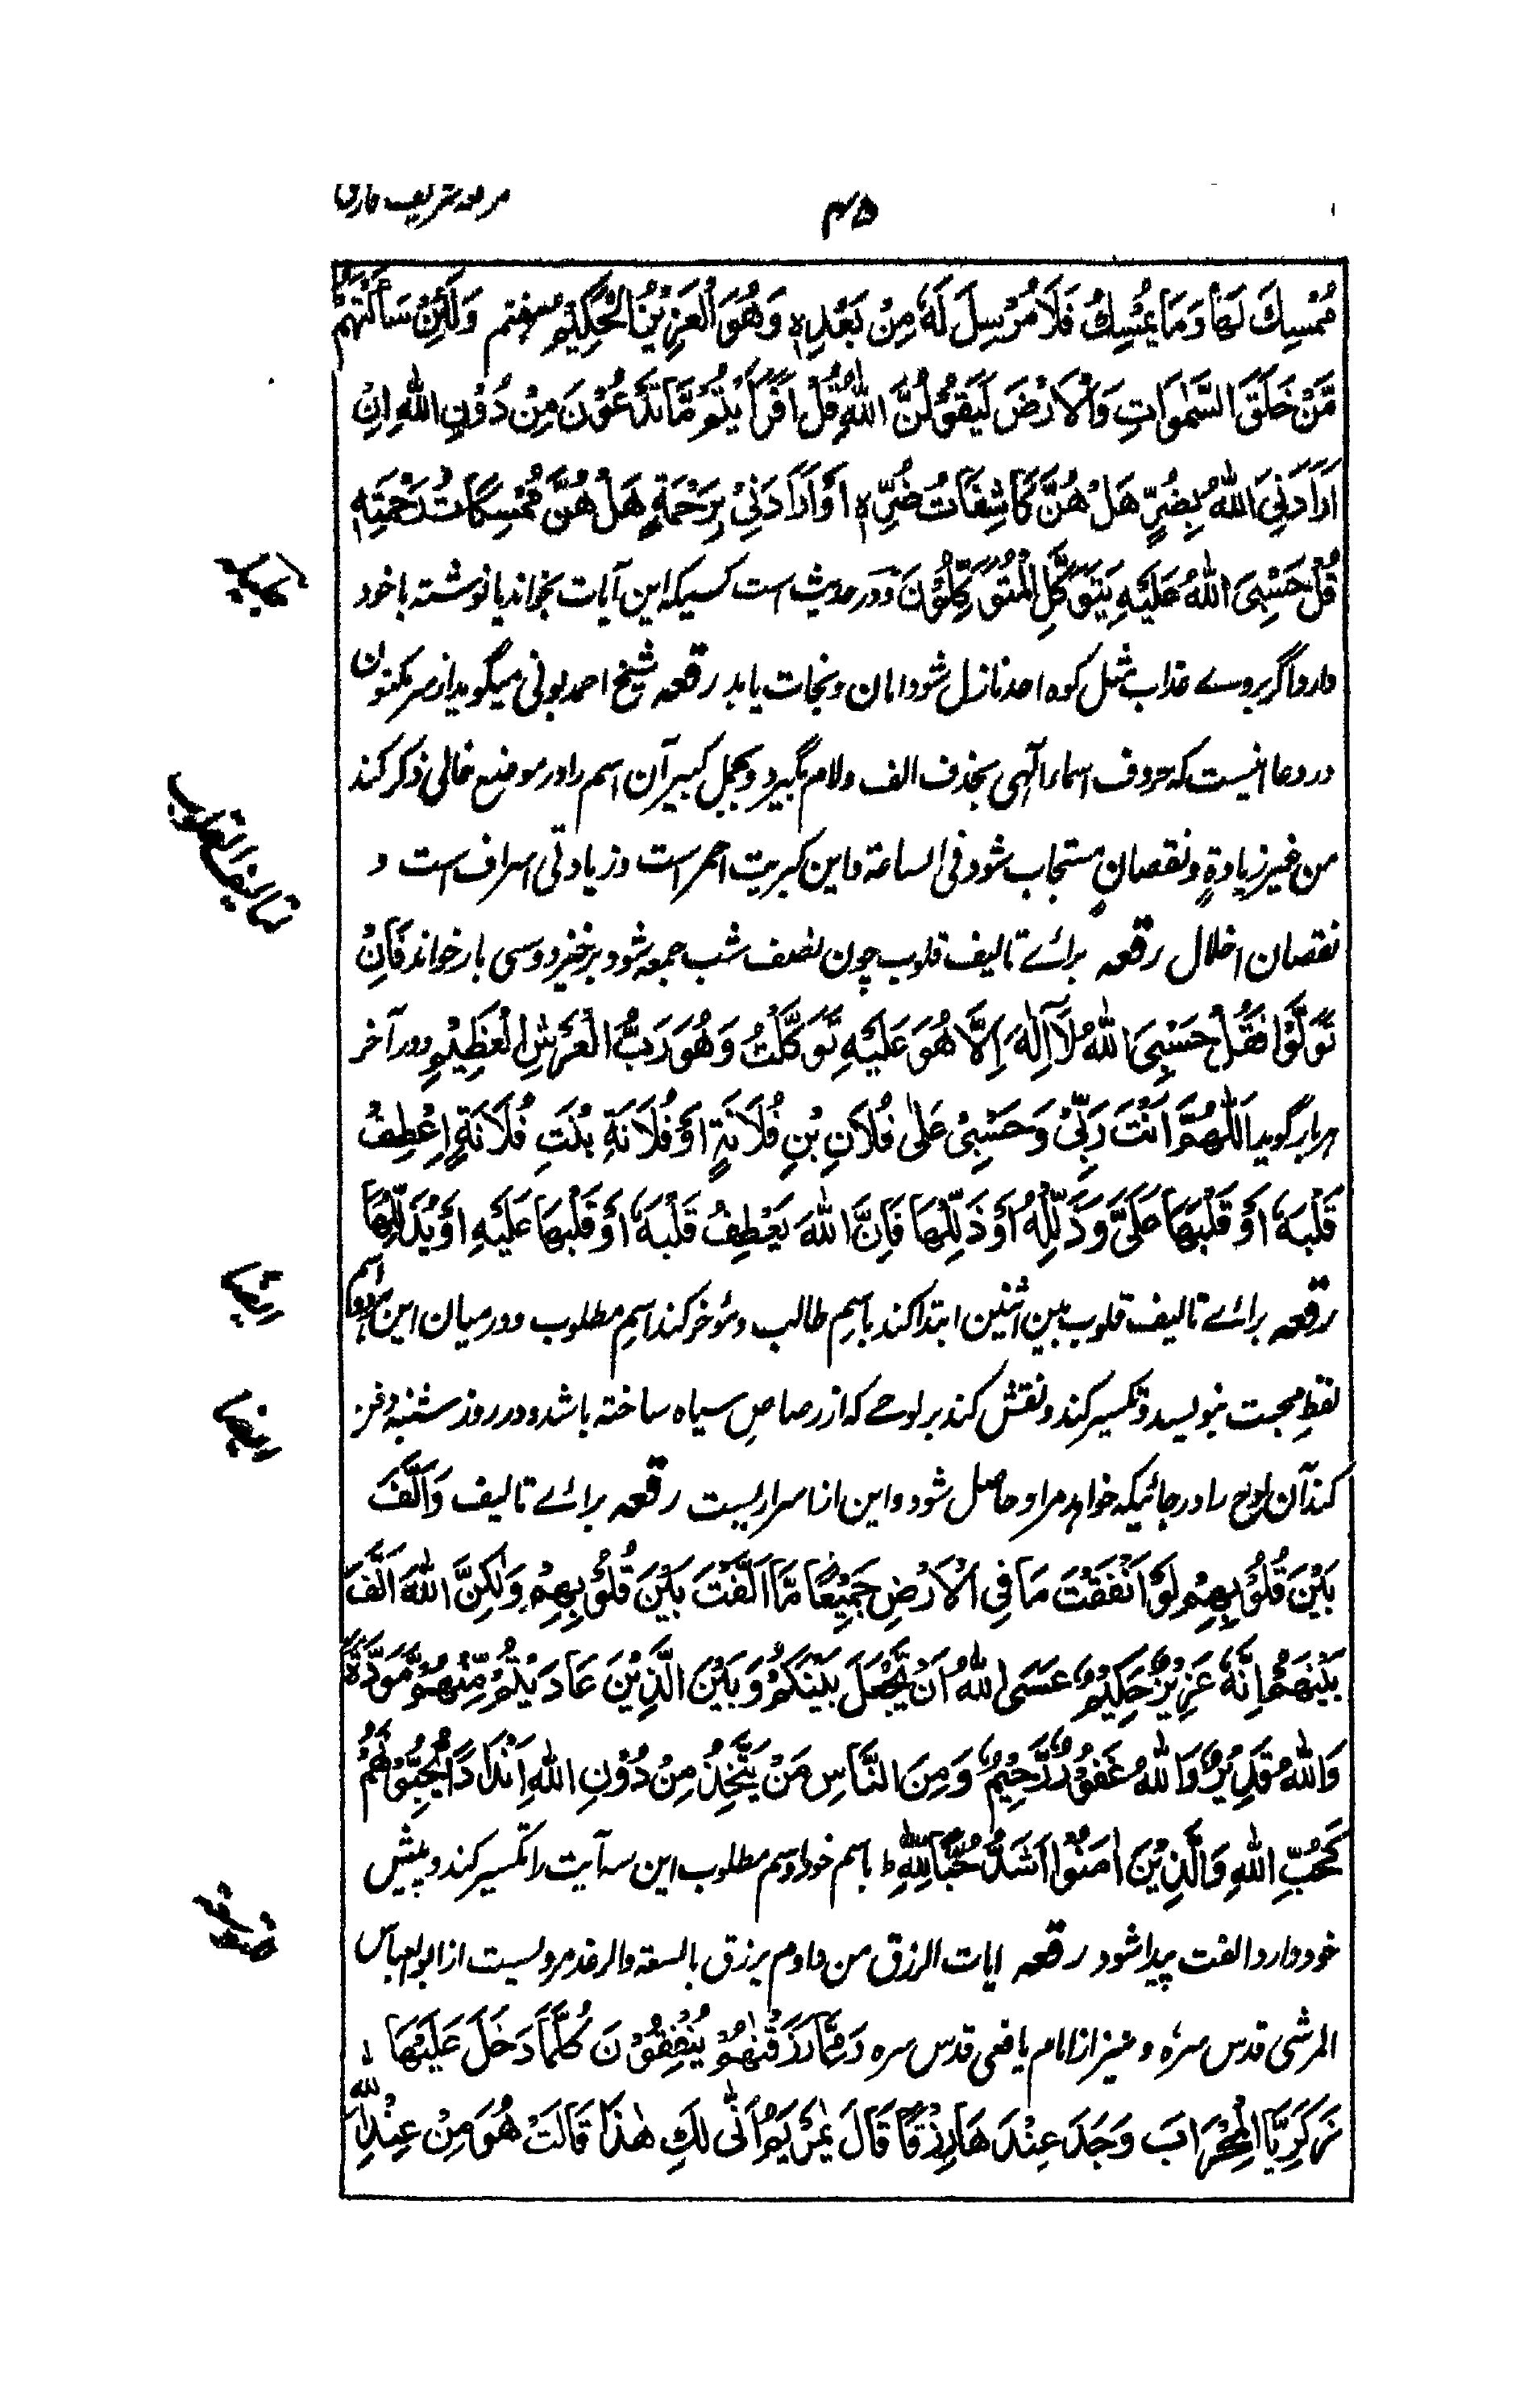 مرقعہ شریف فارسی
۴۵
مُمْسِكَ لَهَا وَمَا يُمْسِكُ فَلَا مُرْسِلَ لَهٗ مِنْ بَعْدِهٖ وَهُوَ الْعَزِيْزُ الْحَكِيْمُ هفتم وَلَئِنْ سَأَلْتَهُمْ
مَّنْ خَلَقَ السَّمٰوَاتِ وَالْاَرْضَ لَيَقُوْلُنَّ اللّٰهُ قُلْ اَفَرَأَيْتُمْ مَّا تَدْعُوْنَ مِنْ دُوْنِ اللّٰهِ اِنْ
اَرَادَنِيَ اللّٰهُ بِضُرٍّ هَلْ هُنَّ كَاشِفَاتُ ضُرِّهٖ اَوْ اَرَادَنِيْ بِرَحْمَةٍ هَلْ هُنَّ مُمْسِكَاتُ رَحْمَتِهٖ
قُلْ حَسْبِيَ اللّٰهُ عَلَيْهِ يَتَوَكَّلُ الْمُتَوَكِّلُوْنَ ودر حدیث است کسیکه این آیات بخواند یا نوشته با خود
دارد اگر بروے عذاب مثل کوه احد نازل شود امان ونجات یابد رقعہ شیخ احمد بونی میگوید از سر مکنون
در دعا انیست که حروف اسما را آلهی بحذف الف ولام بگیرد وبجمل کبیر آن اسم را در موضع خالی ذکر کند
من غیر زیادةٍ ونقصانٍ مستجاب شود فی الساعة واین کبریت احمر است وزیادتی اسراف است و
نقصان اخلال رقعہ براے تالیف قلوب چون نصف شب جمعه شود برخیزد وسی بار خواند فَاِنْ
تَوَلَّوْا فَقُلْ حَسْبِيَ اللّٰهُ لَآ اِلٰهَ اِلَّا هُوَ عَلَيْهِ تَوَكَّلْتُ وَهُوَ رَبُّ الْعَرْشِ الْعَظِيْمِ ودر آخر
هر بار گوید اَللّٰهُمَّ اَنْتَ رَبِّيْ وَحَسْبِيْ عَلٰى فُلَانِ بْنِ فُلَانَةٍ اَوْ فُلَانَةِ بِنْتِ فُلَانَةٍ اِعْطِفْ
قَلْبَهٗ اَوْ قَلْبَهَا عَلَيَّ وَذَلِّلْهُ اَوْ ذَلِّلْهَا فَاِنَّ اللّٰهَ يَعْطِفُ قَلْبَهٗ اَوْ قَلْبَهَا عَلَيْهِ اَوْ يُذَلِّلُهَا
رقعہ براے تالیف قلوب بین اثنین ابتدا کند باسمِ طالب وموخر کند اسمِ مطلوب ودر میان این هر دو اسم
لفظِ محبت بنویسد وتکسیر کند ونقش کند بر لوحے که از رصاصِ سیاه ساخته باشد ودر روز شنبه دفن
کند آن لوح را در جائیکه خواهد مراد حاصل شود واین از اسراریست رقعہ براے تالیف وَاَلَّفَ
بَيْنَ قُلُوْبِهِمْ لَوْ اَنْفَقْتَ مَا فِي الْاَرْضِ جَمِيْعًا مَّا اَلَّفْتَ بَيْنَ قُلُوْبِهِمْ وَلٰكِنَّ اللّٰهَ اَلَّفَ
بَيْنَهُمْ اِنَّهٗ عَزِيْزٌ حَكِيْمٌ عَسَى اللّٰهُ اَنْ يَّجْعَلَ بَيْنَكُمْ وَبَيْنَ الَّذِيْنَ عَادَيْتُمْ مِّنْهُمْ مَّوَدَّةً
وَاللّٰهُ قَدِيْرٌ وَاللّٰهُ غَفُوْرٌ رَّحِيْمٌ وَمِنَ النَّاسِ مَنْ يَّتَّخِذُ مِنْ دُوْنِ اللّٰهِ اَنْدَادًا يُّحِبُّوْنَهُمْ
كَحُبِّ اللّٰهِ وَالَّذِيْنَ اٰمَنُوْا اَشَدُّ حُبًّا لِّلّٰهِ ط باسم خود واسم مطلوب این سه آیت را تکسیر کند وپیش
خود دارد الفت پیدا شود رقعہ ایات الرزق من داوم یرزق بالسعة والرغد مرویست از ابو العباس
المرشی قدس سرہ ونیز از امام یافعی قدس سره وَمِمَّا رَزَقْنٰهُمْ يُنْفِقُوْنَ كُلَّمَا دَخَلَ عَلَيْهَا
زَكَرِيَّا الْمِحْرَابَ وَجَدَ عِنْدَهَا رِزْقًا قَالَ يٰمَرْيَمُ اَنّٰى لَكِ هٰذَا قَالَتْ هُوَ مِنْ عِنْدِ اللّٰهِ
تالیف القلوب
ایضا
ایضا